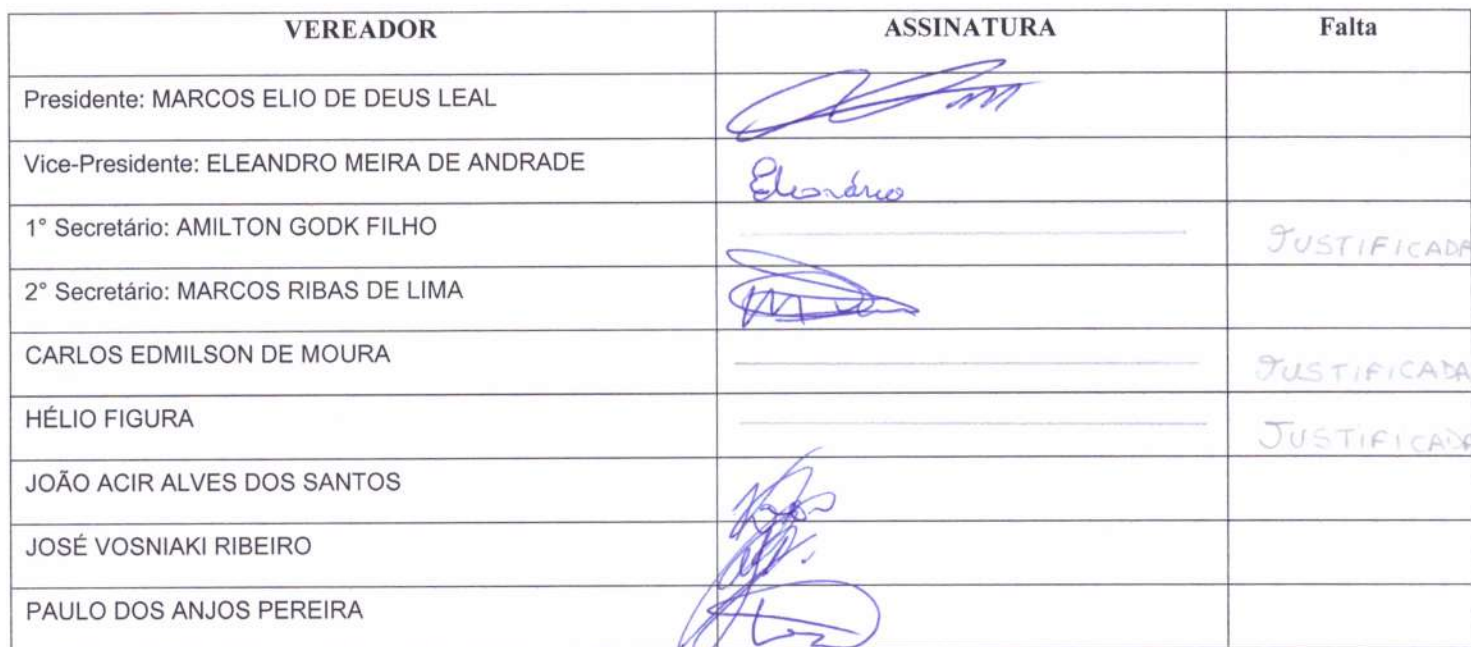 VEREADOR ASSINATURA Falta
Presidente: MARCOS ELIO DE DEUS LEAL
Vice-Presidente: ELEANDRO MEIRA DE ANDRADE
1° Secretário: AMILTON GODK FILHO JUSTIFICADA
2° Secretário: MARCOS RIBAS DE LIMA
CARLOS EDMILSON DE MOURA JUSTIFICADA
HÉLIO FIGURA JUSTIFICADA
JOÃO ACIR ALVES DOS SANTOS
JOSÉ VOSNIAKI RIBEIRO
PAULO DOS ANJOS PEREIRA